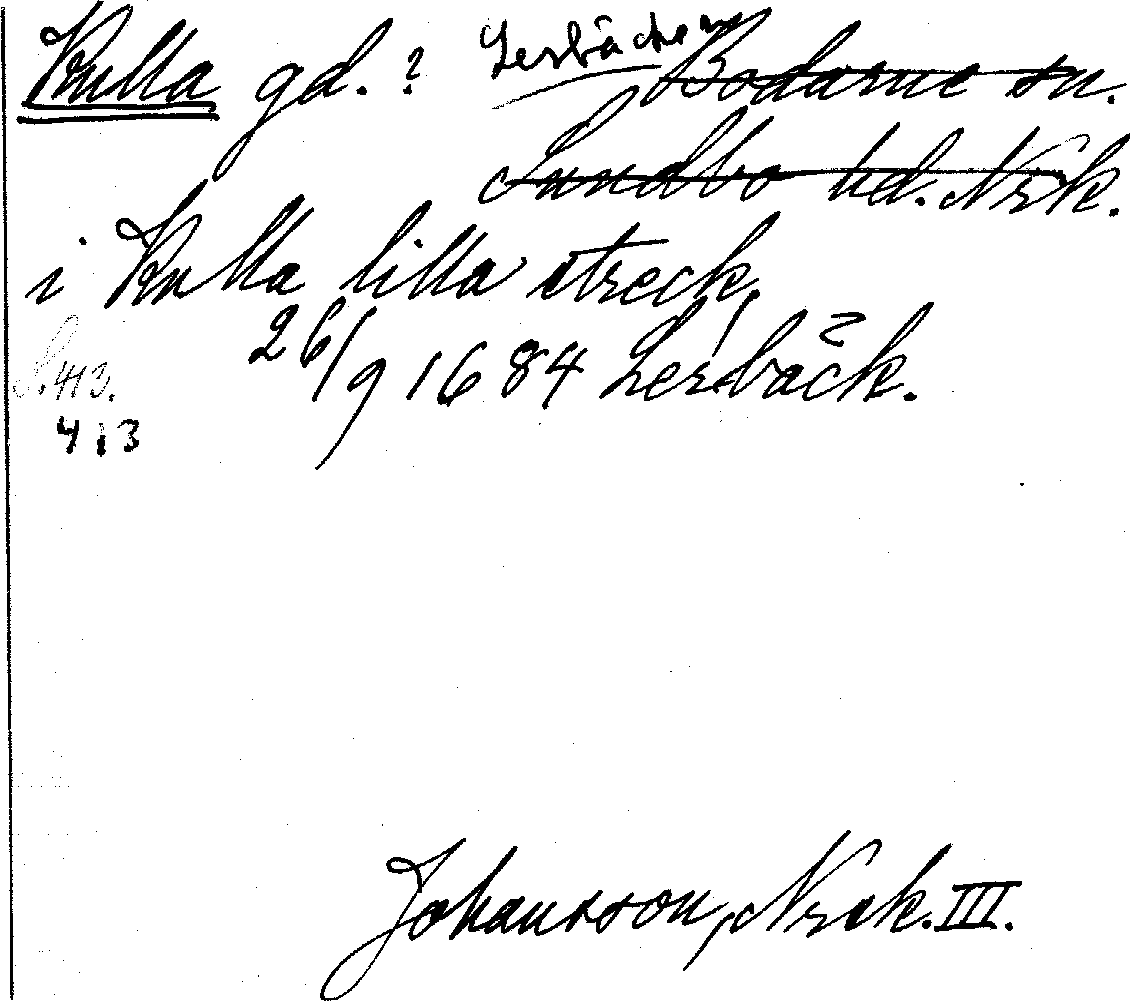 Kulla gd. ? Lerbäcken Bodarne sn.
Sundbo hd. Nrk.
i Kulla lilla streck,
26/9 1684 Lerbäck.
S. 413.
413
Johansson, Nrk. III.